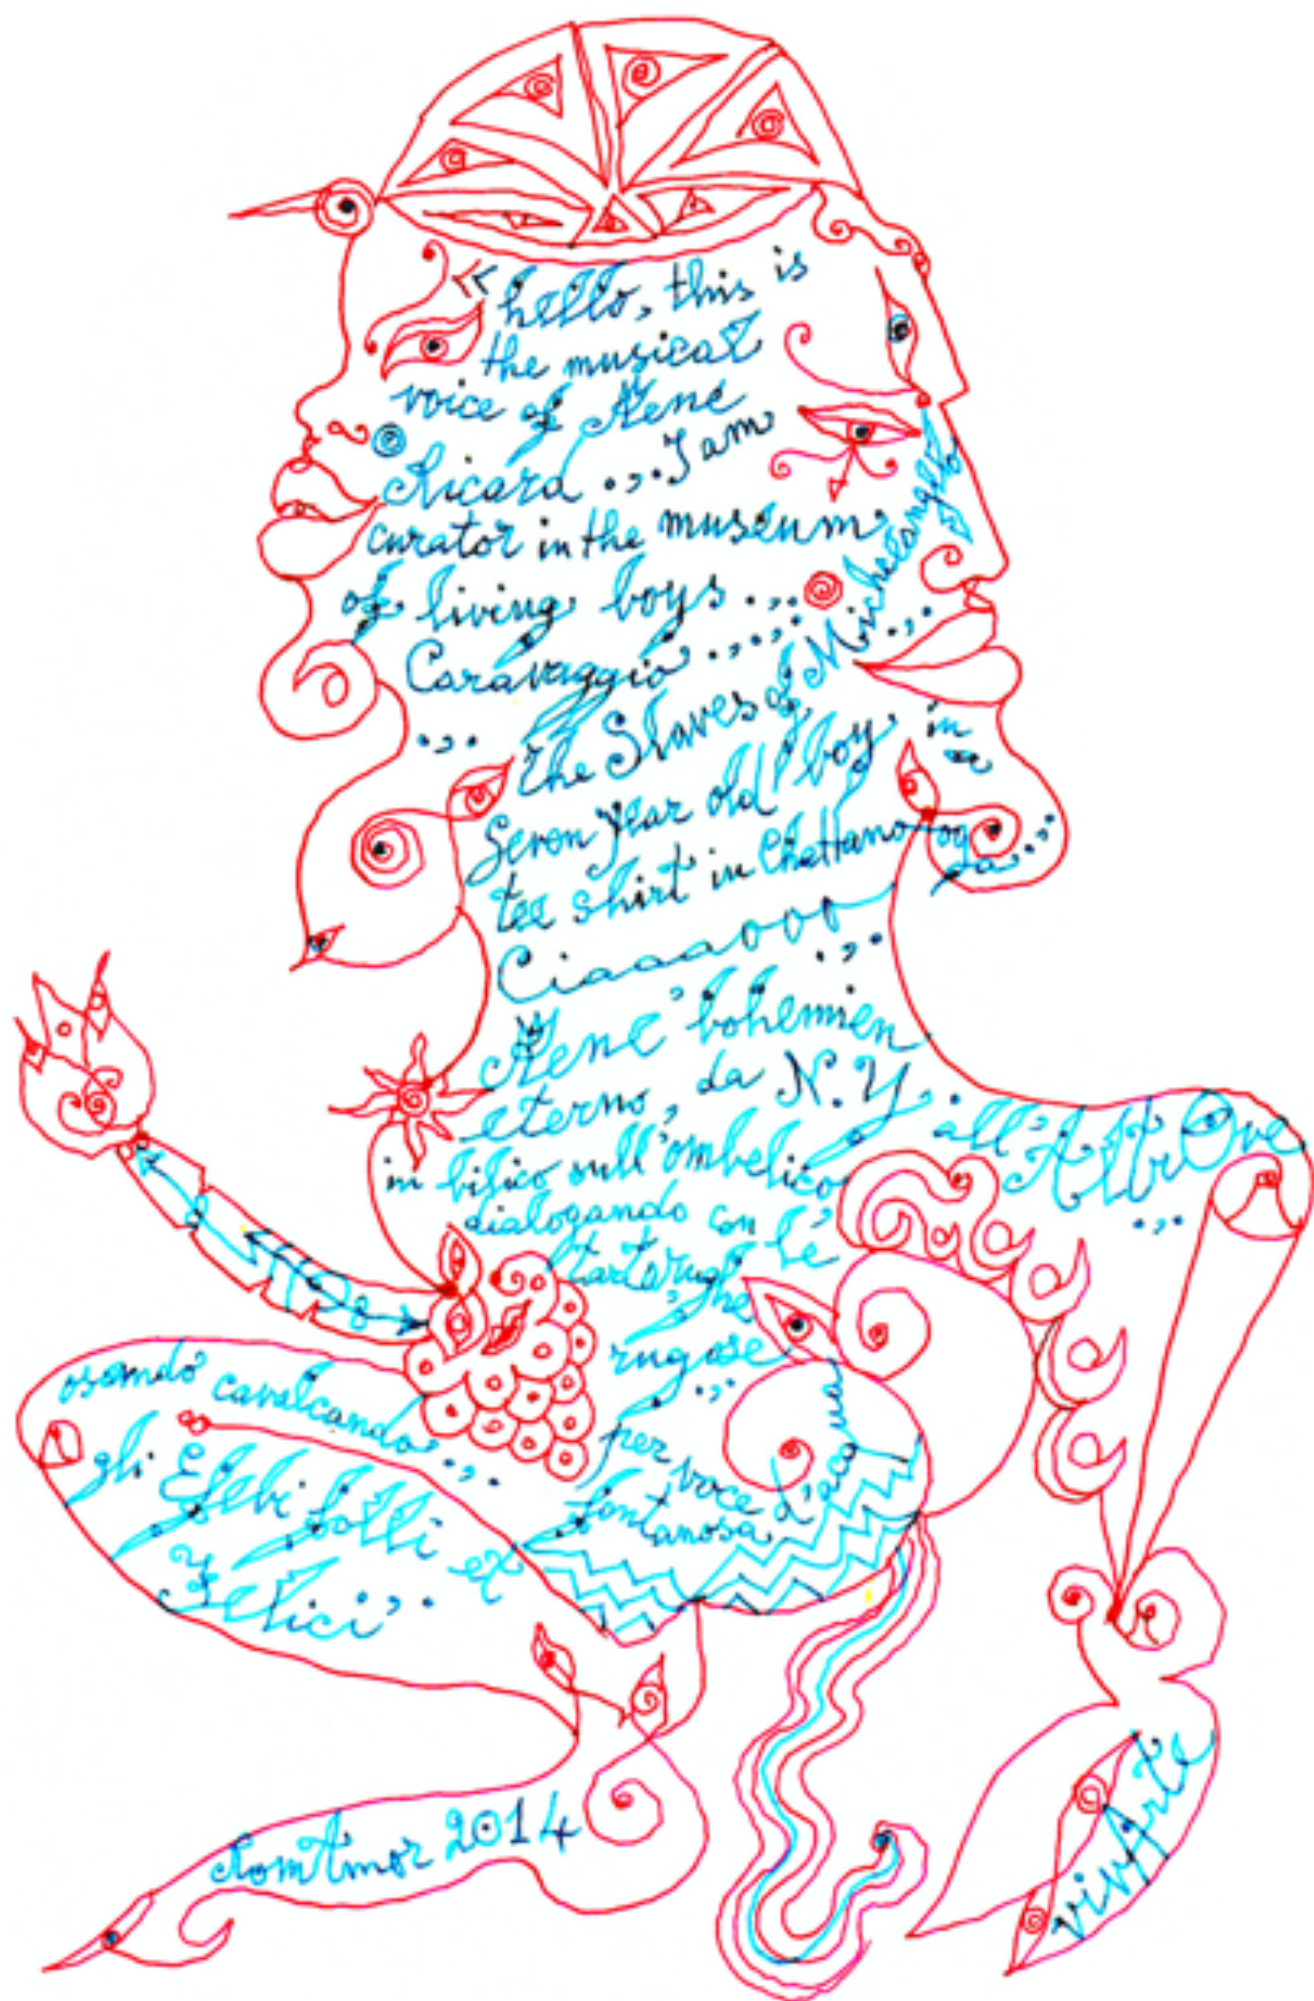 « hello, this is
the musical
voice of René
Ricard .,. I am
curator in the museum
of living boys .,.
Caravaggio .,.,.
.,. the Slaves of Michelangelo .,.
Seven year old boy in a
tee shirt in Chattanooga .,.
Ciaaaooo .,.
René bohemien
eterno, da N.Y. all'AlbirOve .,.
in bilico sull'ombelico
dialogando con le
tartarughe
rugose .,.
per voce d'acqua
fontanosa
osando cavalcando .,.
gli Efebi folli et
Felici .,.
RomAmor 2014
vivArte